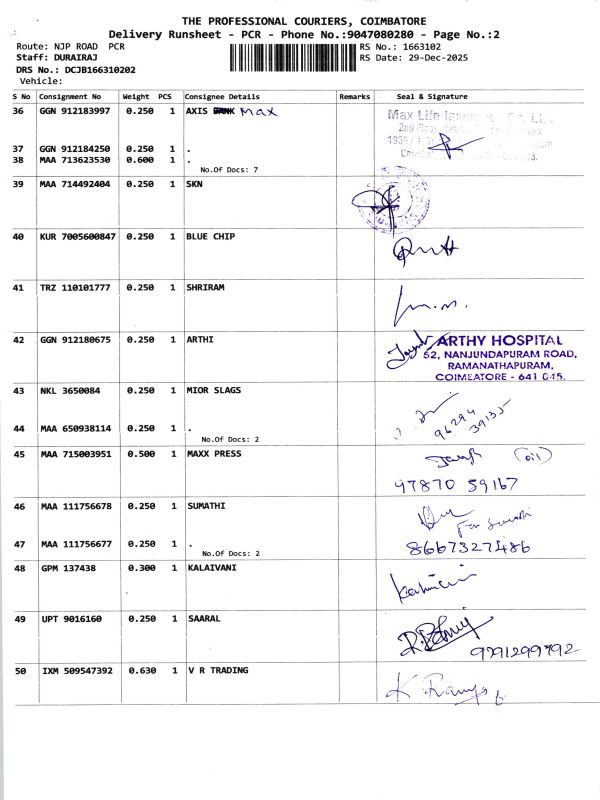 THE PROFESSIONAL COURIERS, COIMBATORE
Delivery Runsheet - PCR - Phone No.:9047080280 - Page No.:2
Route: NJP ROAD PCR
RS No.: 1663102
Staff: DURAIRAJ
RS Date: 29-Dec-2025
DRS No.: DCJB166310202
Vehicle:
S No Consignment No Weight PCS Consignee Details Remarks Seal & Signature
36 GGN 912183997 0.250 1 AXIS BANK Max
Max Life
2nd Floor
37 GGN 912184250 0.250 1 .
38 MAA 713623530 0.600 1 .
No.Of Docs: 7
39 MAA 714492404 0.250 1 SKN
40 KUR 7005600847 0.250 1 BLUE CHIP
41 TRZ 110101777 0.250 1 SHRIRAM
42 GGN 912180675 0.250 1 ARTHI
ARTHY HOSPITAL
52, NANJUNDAPURAM ROAD,
RAMANATHAPURAM,
COIMBATORE - 641 045.
43 NKL 3650084 0.250 1 MIOR SLAGS
44 MAA 650938114 0.250 1 .
96294
39135
No.Of Docs: 2
45 MAA 715003951 0.500 1 MAXX PRESS
(oil)
97870 59167
46 MAA 111756678 0.250 1 SUMATHI
For Sumathi
47 MAA 111756677 0.250 1 .
8667327486
No.Of Docs: 2
48 GPM 137438 0.300 1 KALAIVANI
49 UPT 9016160 0.250 1 SAARAL
9791299792
50 IXM 509547392 0.630 1 V R TRADING